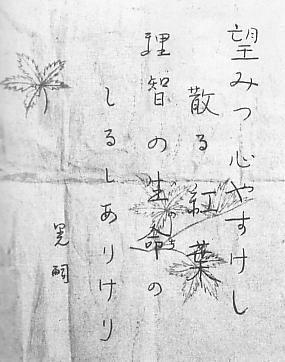 望みつ心やすけし
散る紅葉
理智の生命の
いのち
しるしありけり
晃嗣